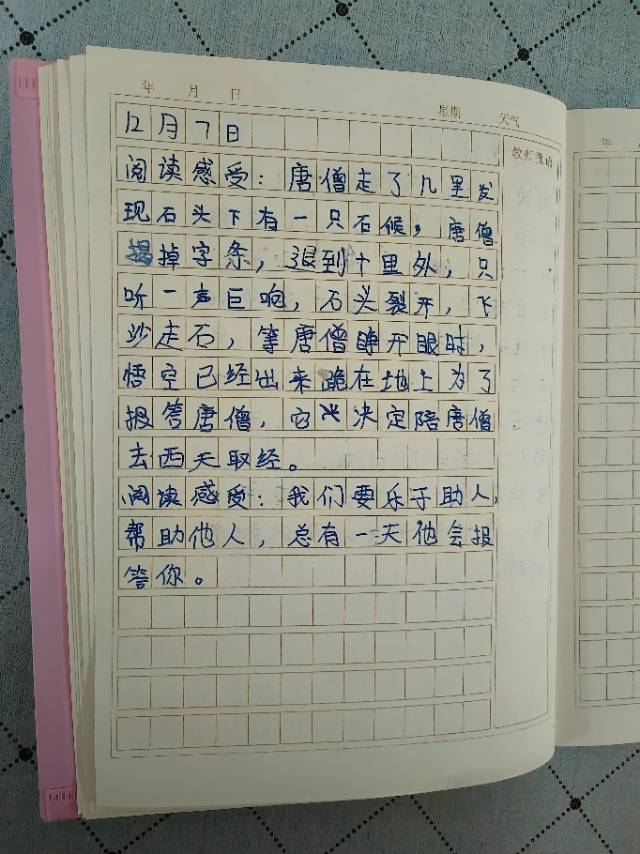 年 月 日 星期 天气
教师评语
年
12月7日
阅读感受：唐僧走了几里发
现石头下有一只石候，唐僧
揭掉字条，退到十里外，只
听一声巨响，石头裂开，飞
沙走石，等唐僧睁开眼时，
悟空已经出来跪在地上为了
报答唐僧，它决定陪唐僧
去西天取经。
阅读感受：我们要乐于助人，
帮助他人，总有一天他会报
答你。